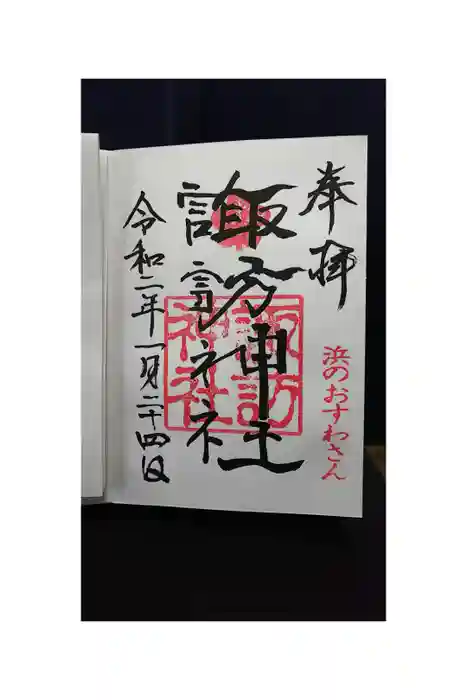 奉拝
浜のおすわさん
諏訪神社
諏訪
神社
令和二年一月二十四日